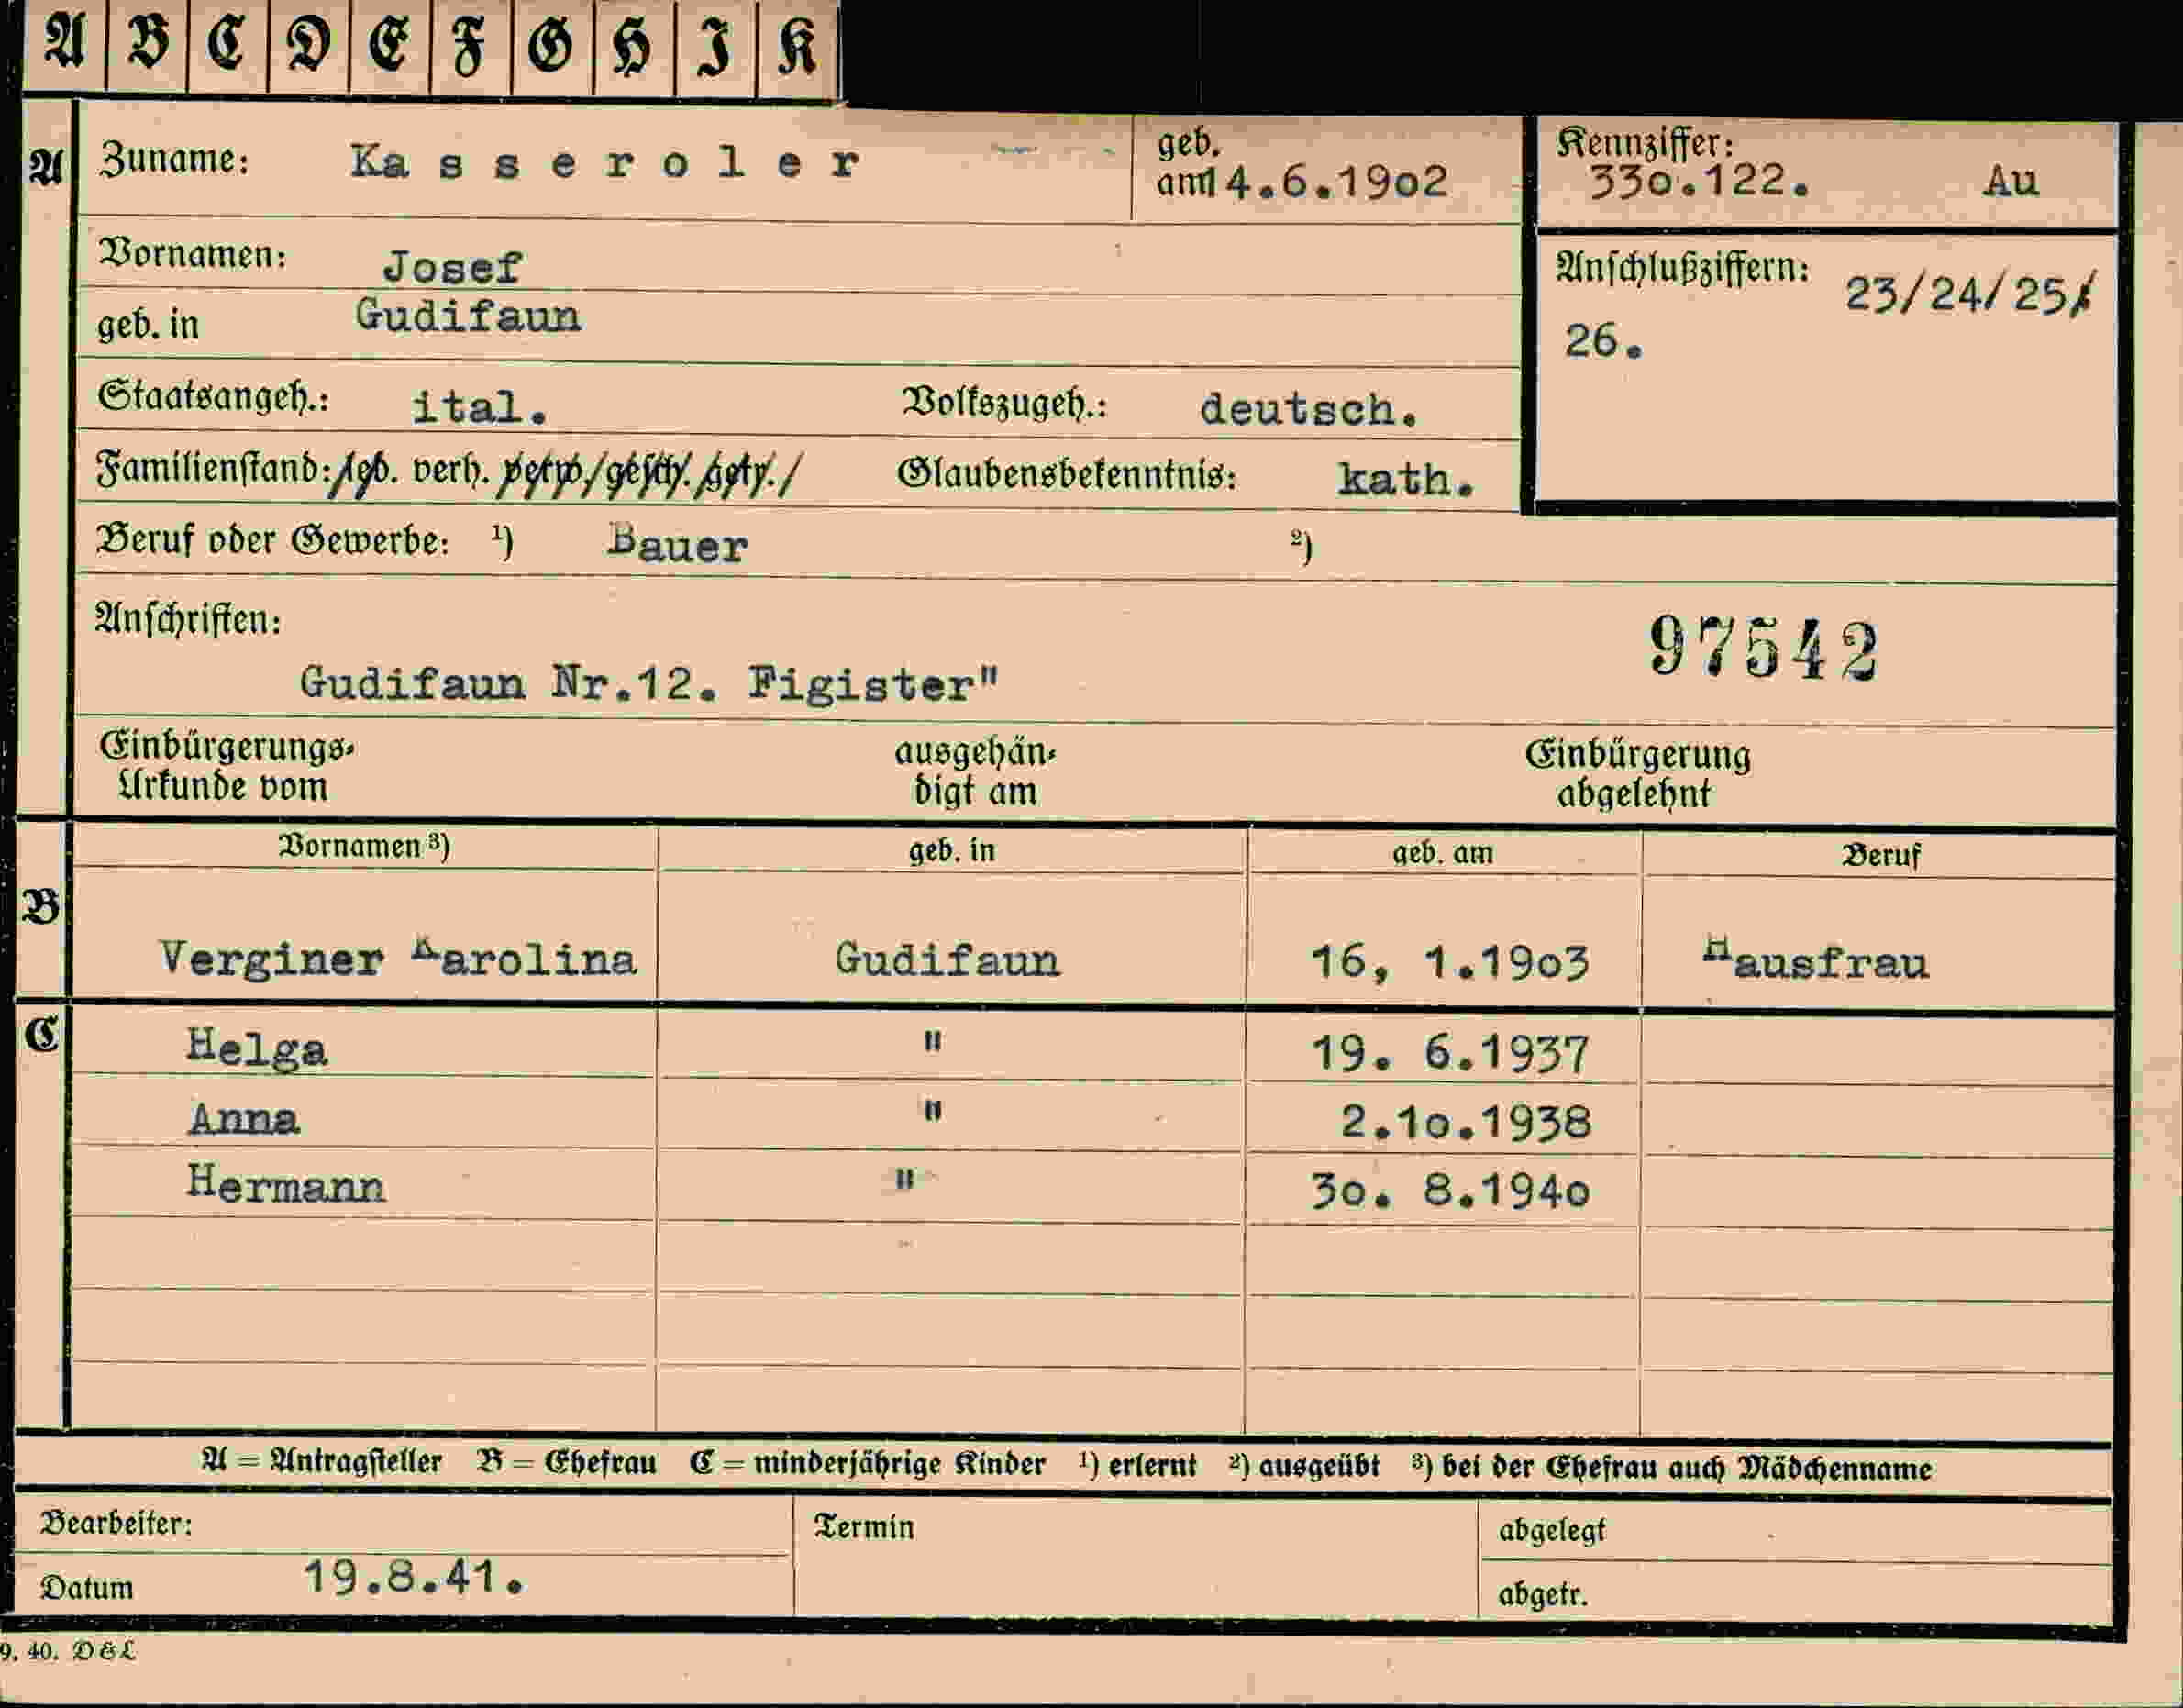 A B C D E F G H I K
A Zuname: Kasseroler geb. am 14.6.1902 Kennziffer: 330.122. Au
Vornamen: Josef
Anschlußziffern: 23/24/25/
26.
geb. in Gudifaun
Staatsangeh.: ital. Volkszugeh.: deutsch.
Familienstand: led. verh. verw. gesch. getr. Glaubensbekenntnis: kath.
Beruf oder Gewerbe: ¹) Bauer ²)
Anschriften: 97542
Gudifaun Nr.12. Figister"
Einbürgerungs- ausgehän- Einbürgerung
Urkunde vom digt am abgelehnt
Vornamen ³) geb. in geb. am Beruf
B Verginer Karolina Gudifaun 16, 1.1903 Hausfrau
C Helga " 19. 6.1937
Anna " 2.10.1938
Hermann " 30. 8.1940
A = Antragsteller B = Ehefrau C = minderjährige Kinder ¹) erlernt ²) ausgeübt ³) bei der Ehefrau auch Mädchenname
Bearbeiter: Termin abgelegt
Datum 19.8.41. abgetr.
9. 40. D&L